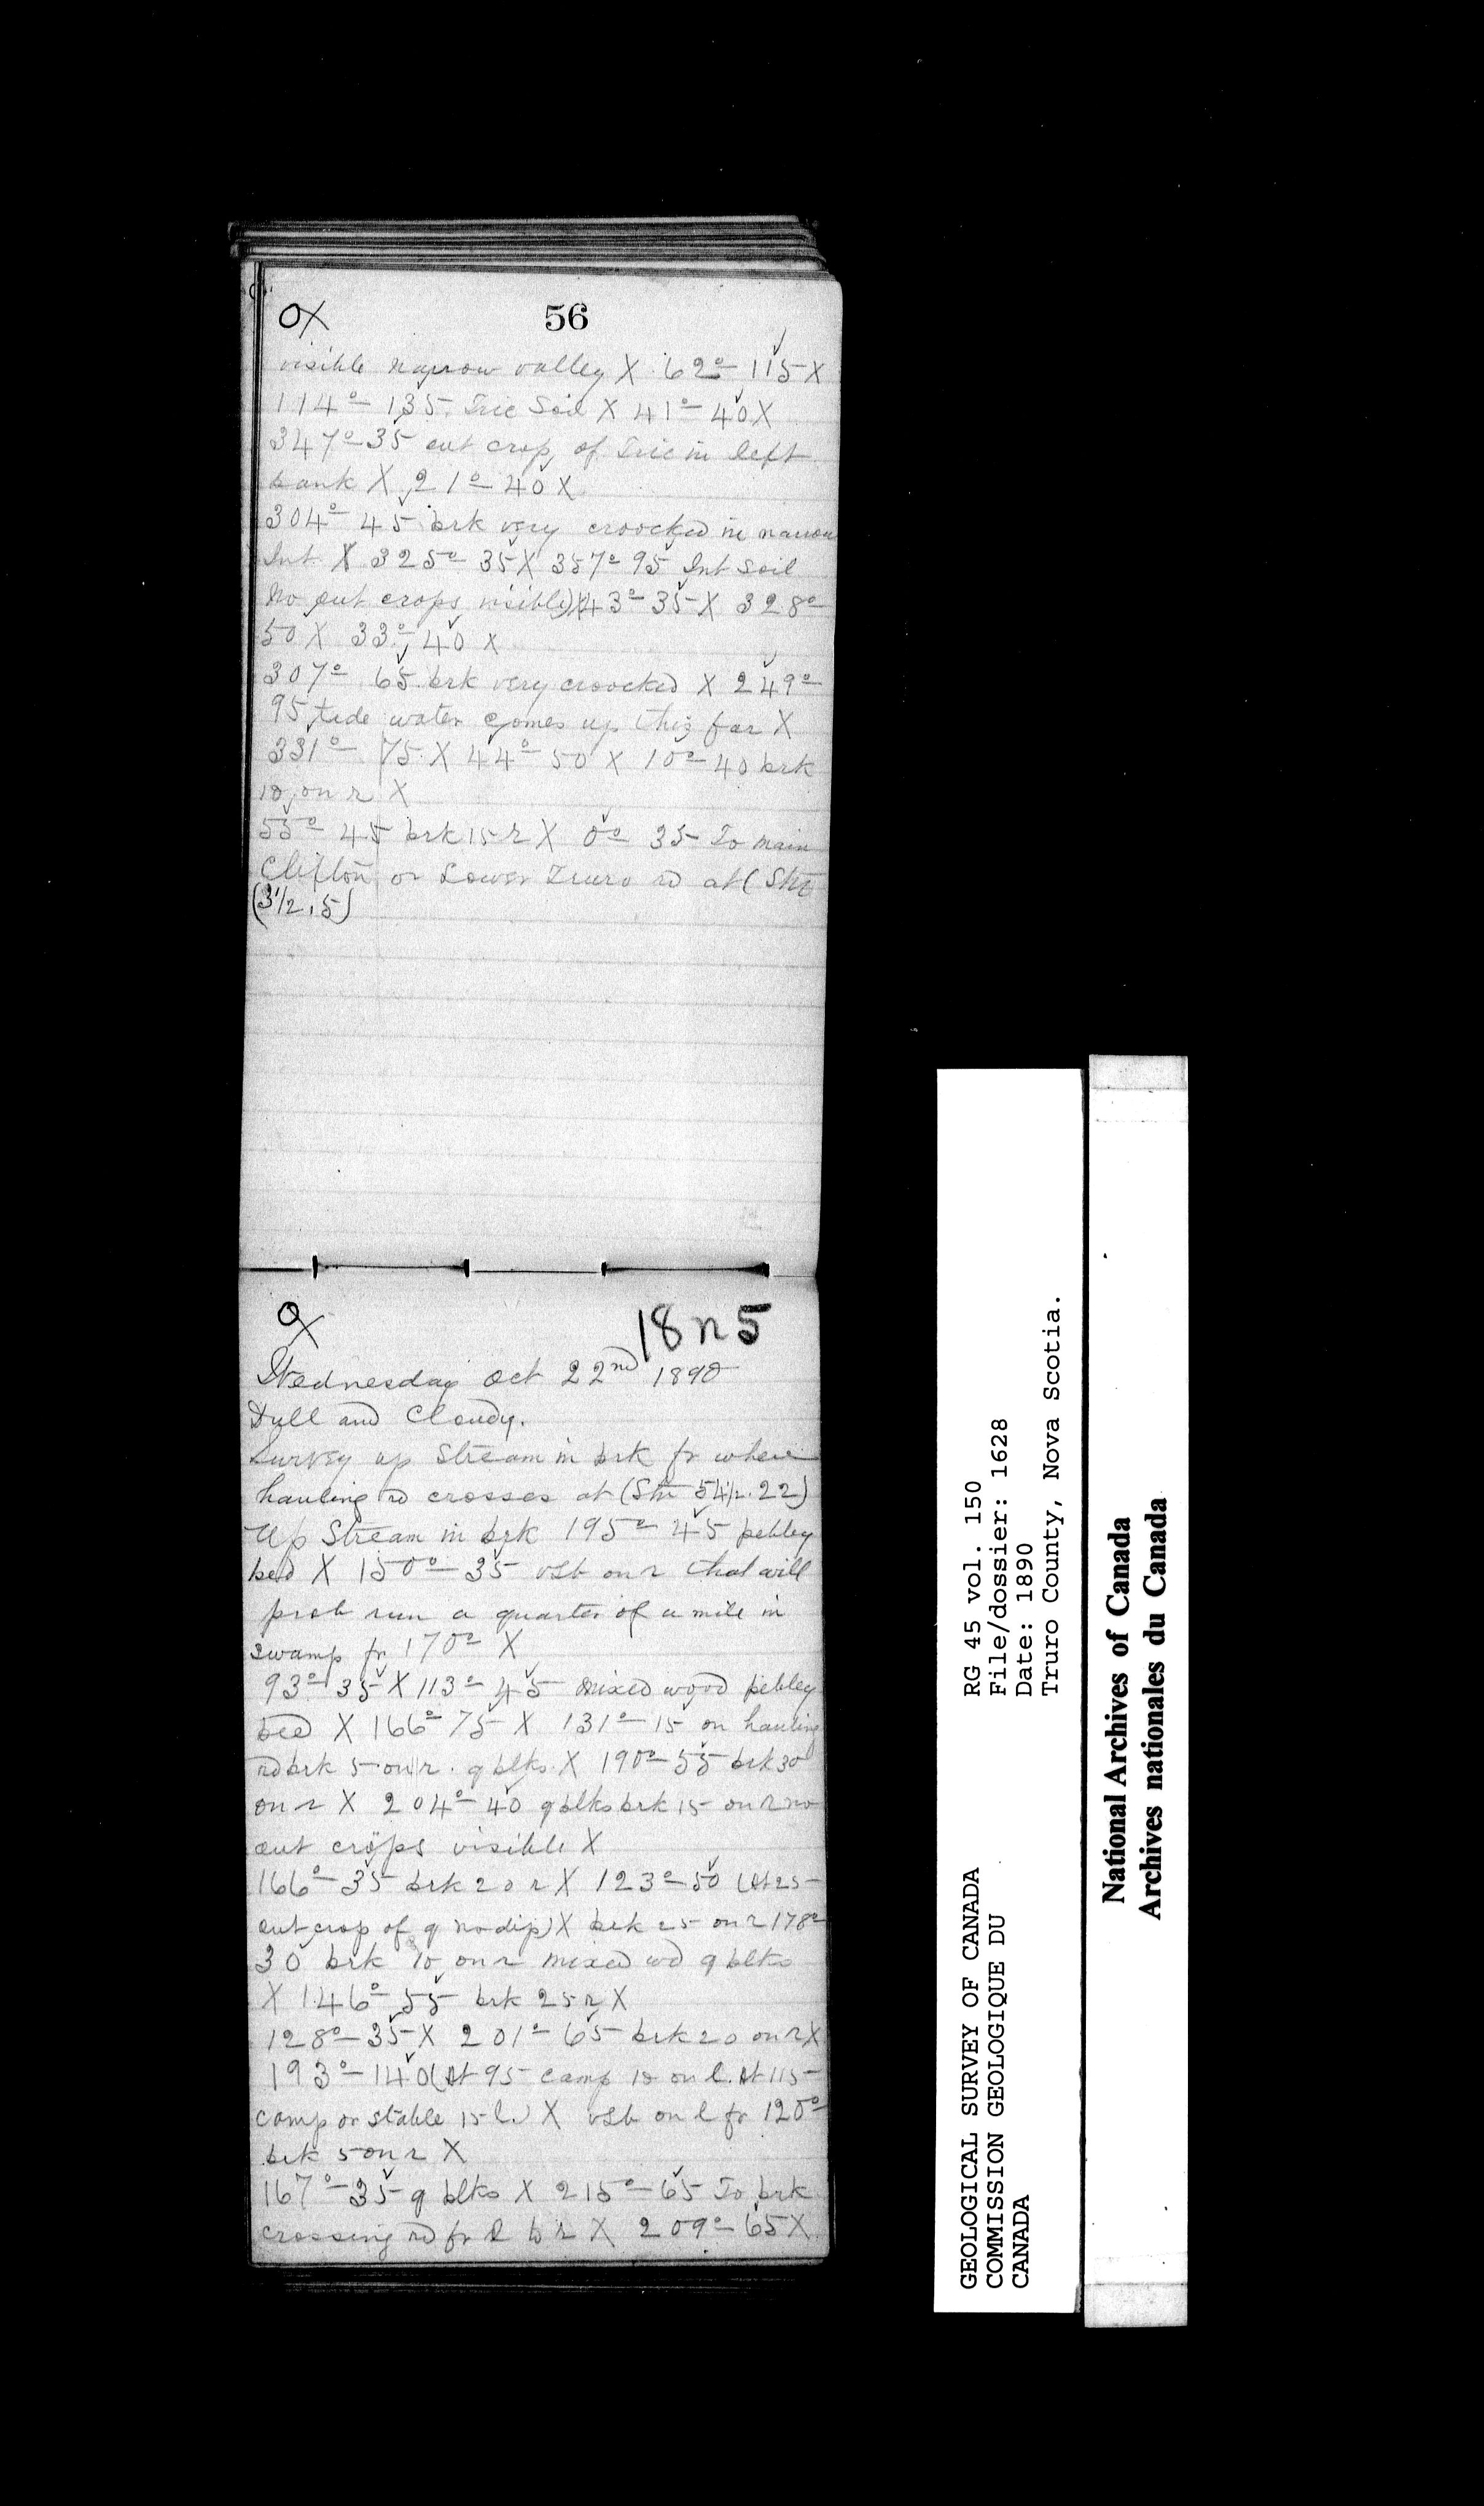 OX
56
visible narrow valley X 62°- 115 X
114°- 135 Tric Soil X 41°- 40 X
347°- 35 out crop of Tric in left
bank X 21°- 40 X
304°- 45 brk very croocked in narrow
Int. X 325°- 35 X 357°- 95 Int Soil
No out crops visible) X 43°- 35 X 328°-
50 X 33°- 40 X
307°- 65 brk very croocked X 249°-
95 tide water comes up this far X
331°- 75 X 44°- 50 X 10°- 40 brk
10 on r X
55°- 45 brk 15 r X 0°- 35 To main
Clifton or Lower Truro rd at (Stn
(3 1/2 . 5)
OX
18 n 5
Wednesday Oct 22nd 1890
Dull and Cloudy.
Survey up Stream in brk fr where
hauling rd crosses at (Stn 54 1/2 . 22)
Up Stream in brk 195°- 45 pebbley
bed X 150°- 35 vsb on r that will
prob run a quarter of a mile in
swamp fr 170° X
93°- 35 X 113°- 45 mixed wood pebley
bed X 166°- 75 X 131°- 15 on hauling
rd brk 5 on r. q blks X 190°- 55 brk 30
on r X 204°- 40 q blks brk 15 on r no
out crops visible X
166°- 35 brk 20 r X 123°- 50 (At 25-
out crop of q no dip) X brk 25 on r 178°-
30 brk 10 on r mixed wd q blks
X 146°- 55 brk 25 r X
128°- 35 X 201°- 65 brk 20 on r X
193°- 140 (At 95 camp 10 on l. At 115-
camp or stable 15 l.) X vsb on l fr 120°-
brk 5 on r X
167°- 35 q blks X 215°- 65 To brk
crossing rd fr l to r X 209°- 65 X
GEOLOGICAL SURVEY OF CANADA
COMMISSION GEOLOGIQUE DU
CANADA
RG 45 vol. 150
File/dossier: 1628
Date: 1890
Truro County, Nova Scotia.
National Archives of Canada
Archives nationales du Canada